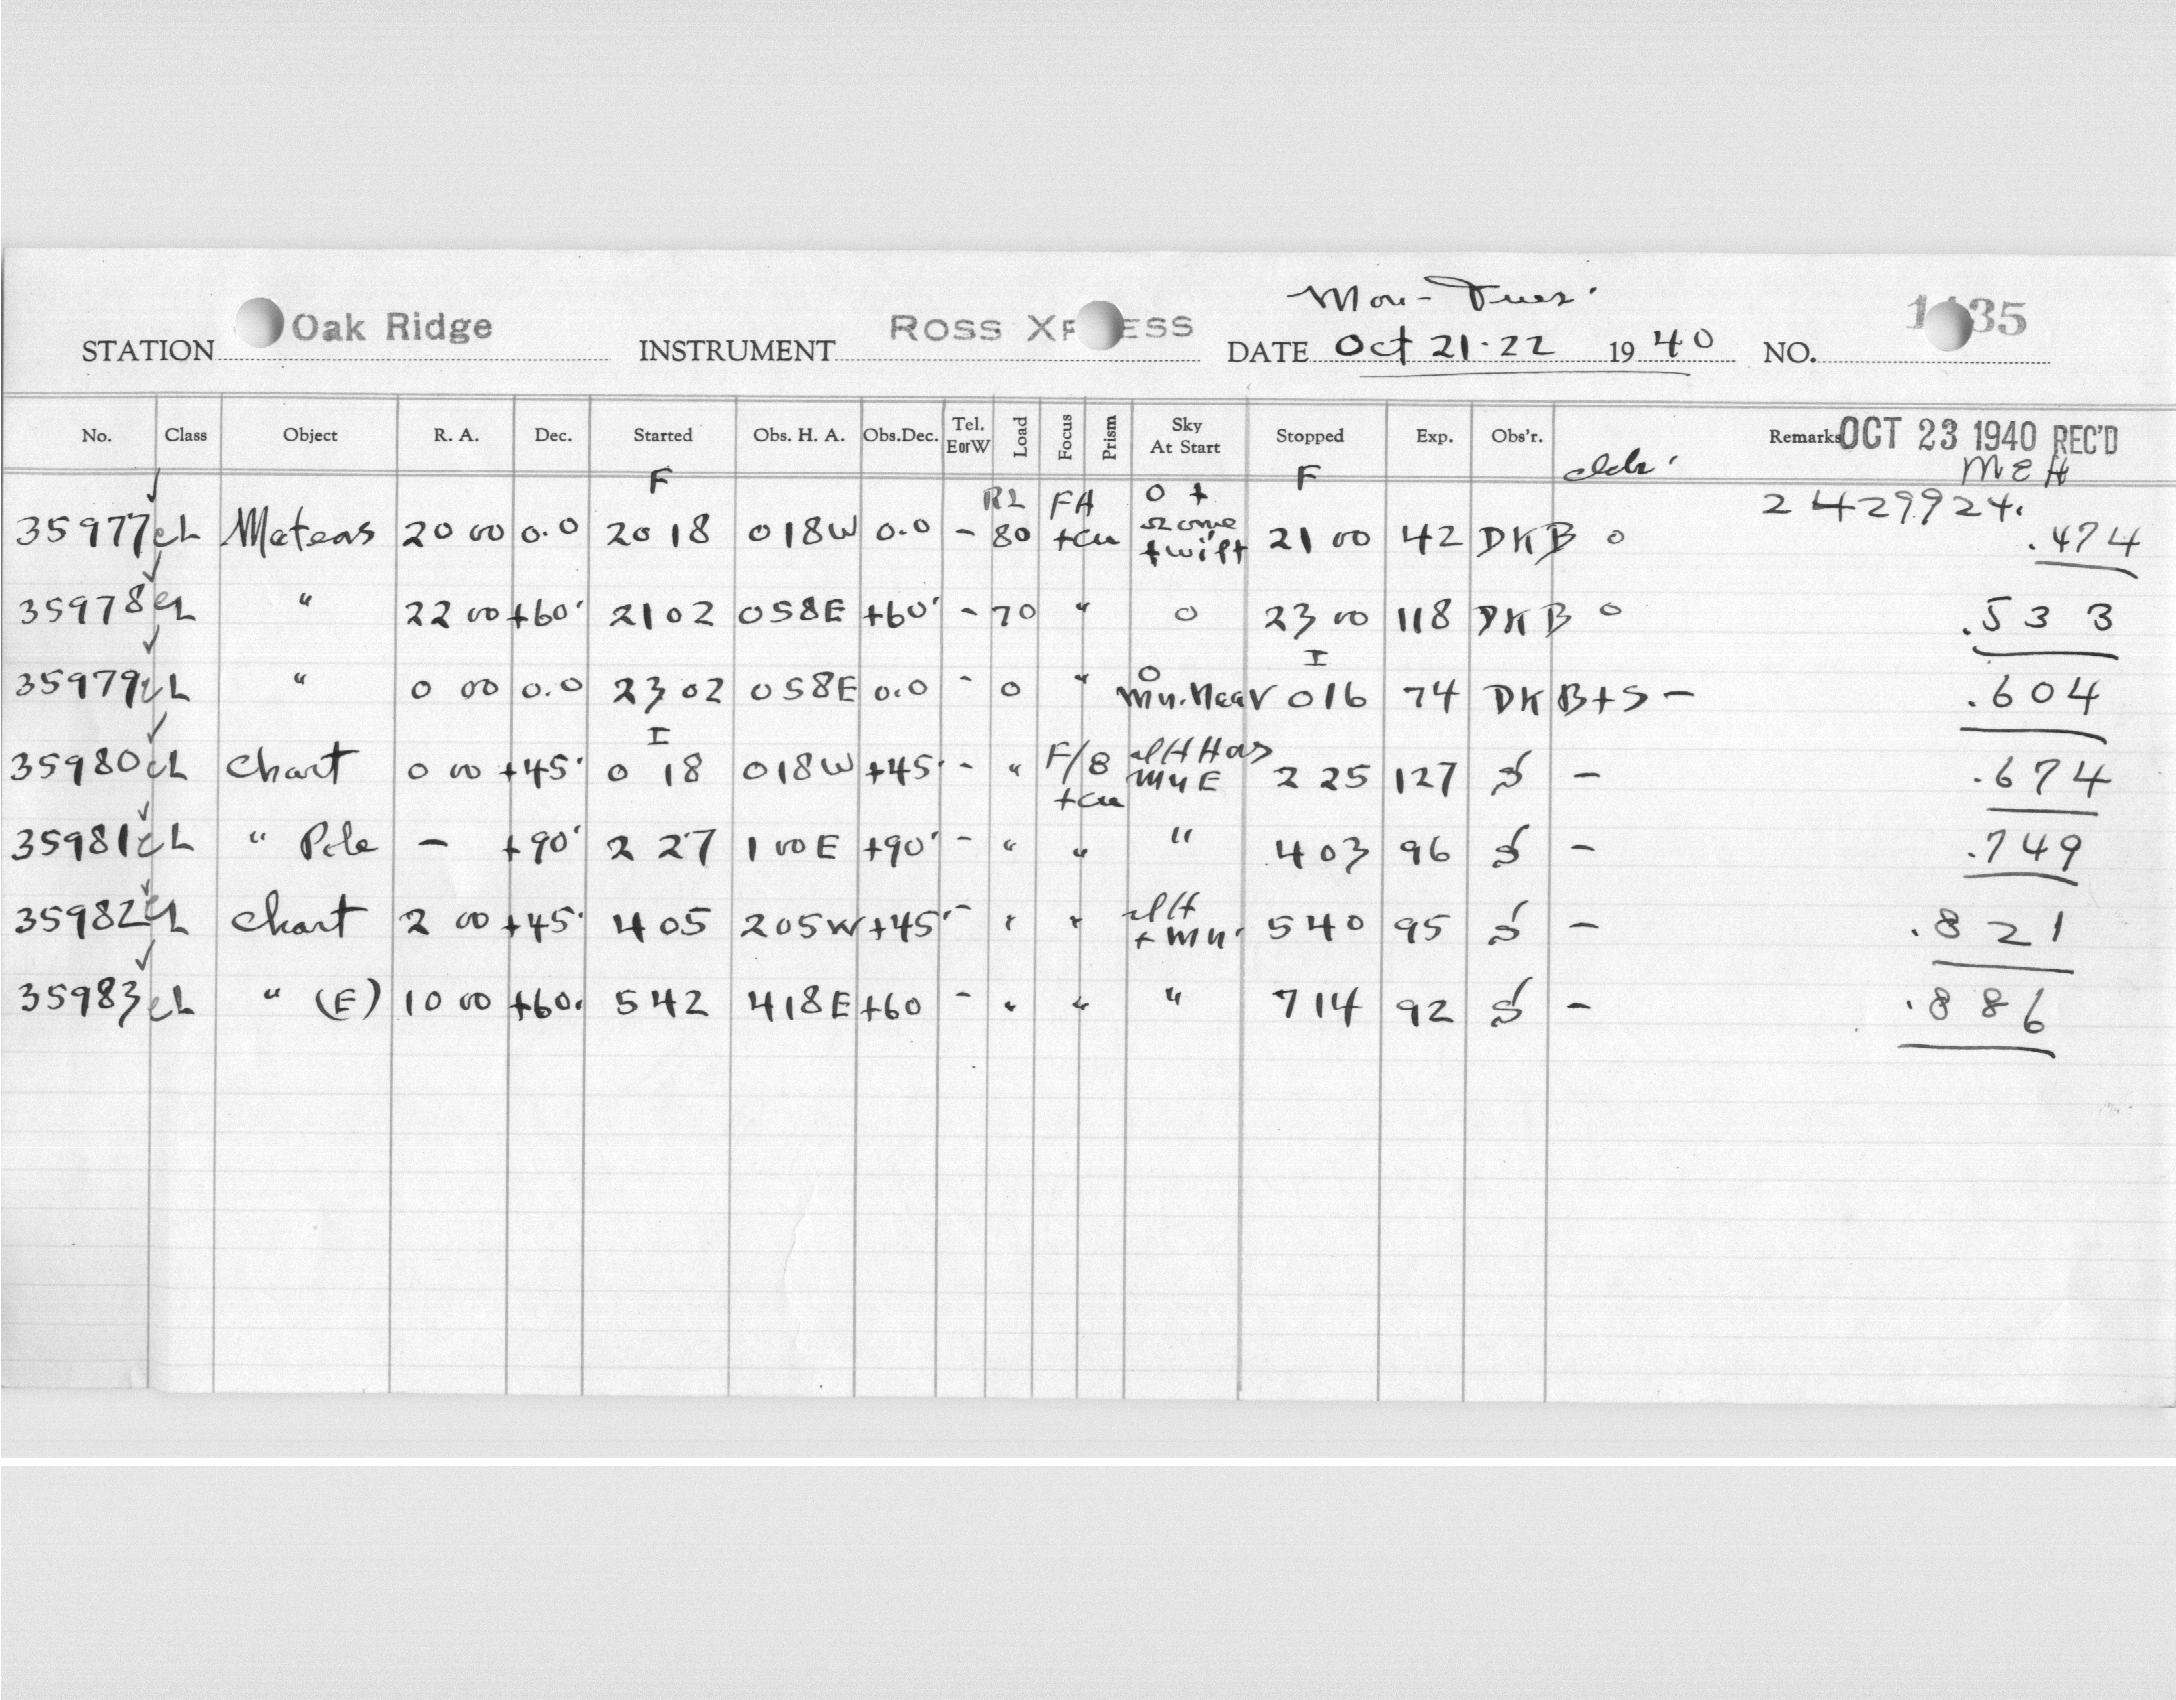 Mon-Tues.
STATION Oak Ridge INSTRUMENT ROSS XPRESS DATE Oct 21-22 1940 NO. 35
No. Class Object R. A. Dec. Started Obs. H. A. Obs.Dec. Tel. EorW Load Focus Prism Sky At Start Stopped Exp. Obs'r. Remarks OCT 23 1940 REC'D
F F MEH
2429924.
35977 Meteors 20 00 0.0 20 18 0 18W 0.0 - RL 80 FA 0 + some twilt 21 00 42 DKB 0 .474
35978 " 22 00 +60° 21 02 0 58E +60° - 70 " 0 23 00 118 DKB 0 .533
35979 " 0 00 0.0 23 02 0 58E 0.0 - 0 " 0 Mn. Near I 0 16 74 DKB+S - .604
35980 Chart 0 00 +45° I 0 18 0 18W +45° - " F/8 Mn E 2 25 127 S - .674
35981 " Pole - +90° 2 27 1 00E +90° - " " " 4 03 96 S - .749
35982 Chart 2 00 +45° 4 05 2 05W +45° - " " + Mn. 5 40 95 S - .821
35983 " (E) 10 00 +60° 5 42 4 18E +60 - " " " 7 14 92 S - .886